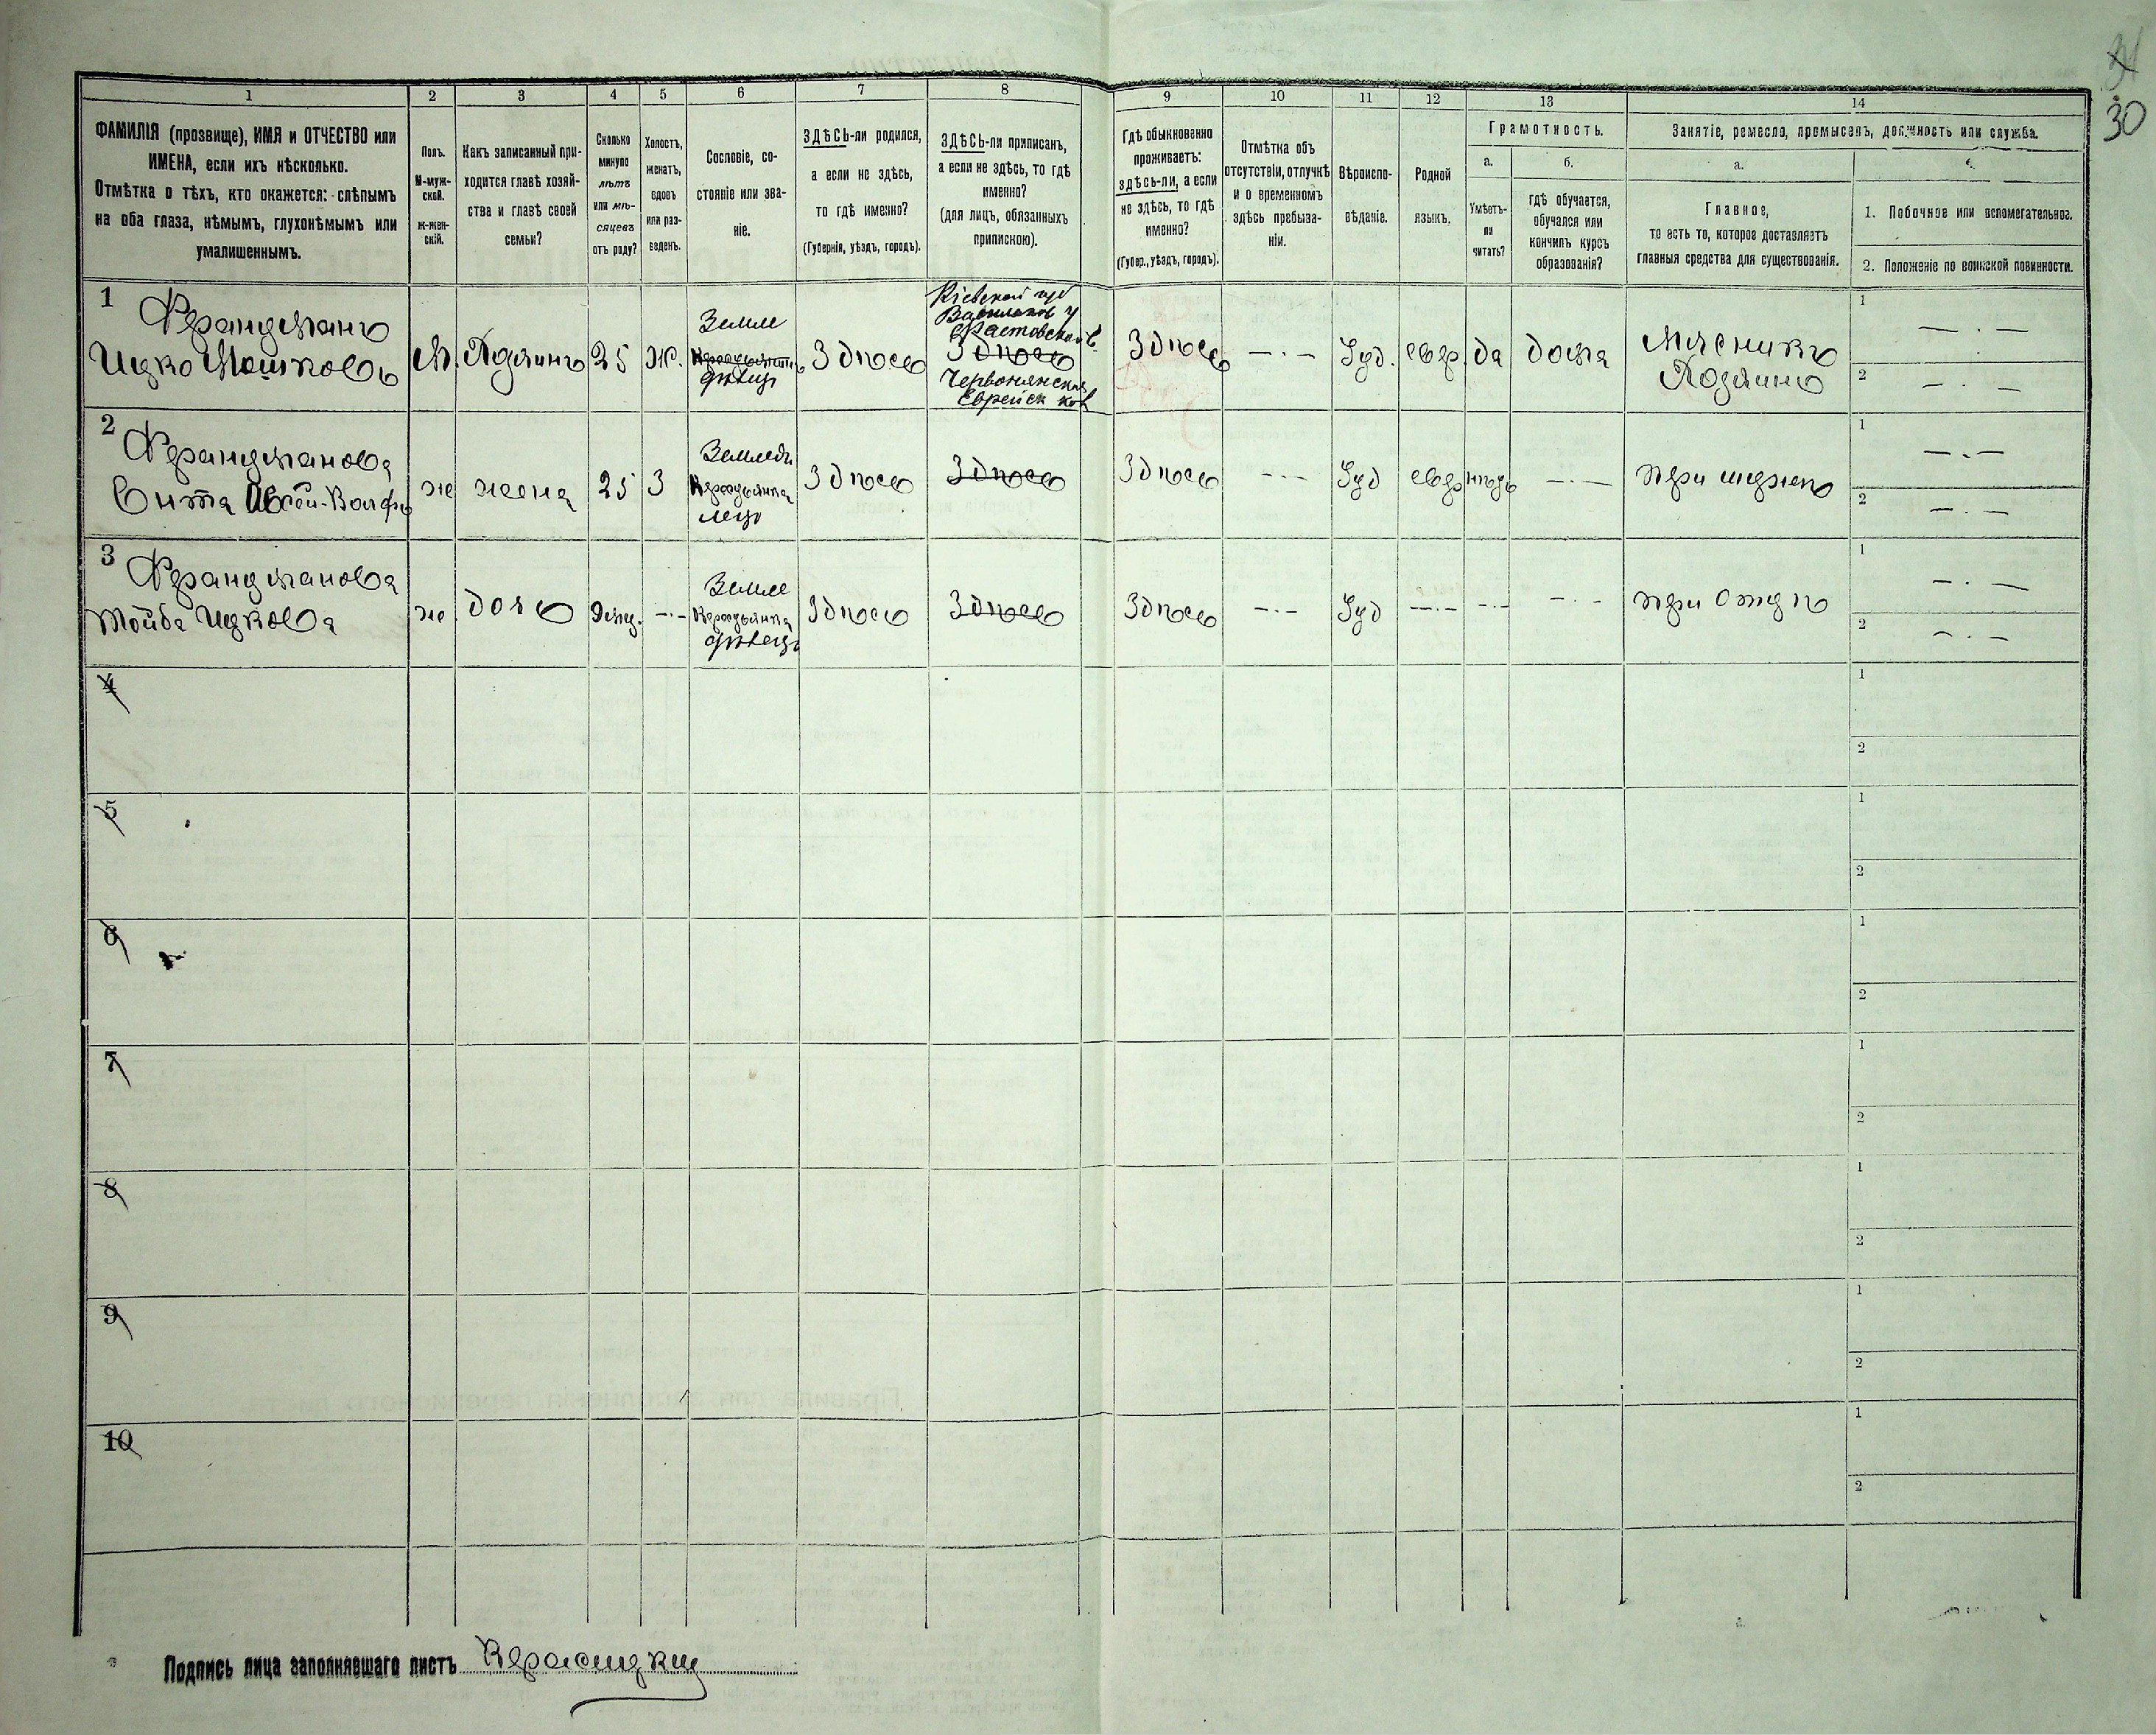 30
1
2
3
4
5
6
7
8
9
10
11
12
13
14
ФАМИЛІЯ (прозвище), ИМЯ и ОТЧЕСТВО или
ИМЕНА, если ихъ нѣсколько.
Отмѣтка о тѣхъ, кто окажется: слѣпымъ
на оба глаза, нѣмымъ, глухонѣмымъ или
умалишеннымъ.
Полъ.
М-муж-
ской.
ж-жен-
скій.
Какъ записанный при-
ходится главѣ хозяй-
ства и главѣ своей
семьи?
Сколько
минуло
лѣтъ
или мѣ-
сяцевъ
отъ роду?
Холостъ,
женатъ,
вдовъ
или раз-
веденъ.
Сословіе, со-
стояніе или зва-
ніе.
ЗДѢСЬ-ли родился,
а если не здѣсь,
то гдѣ именно?
(Губернія, уѣздъ, городъ).
ЗДѢСЬ-ли приписан,
а если не здѣсь, то гдѣ
именно?
(для лицъ, обязанныхъ
припискою).
Гдѣ обыкновенно
проживаетъ:
здѣсь-ли, а если
не здѣсь, то гдѣ
именно?
(Губер., уѣздъ, городъ).
Отмѣтка объ
отсутствіи, отлучкѣ
и о временномъ
здѣсь пребыва-
ніи.
Вѣроиспо-
вѣданіе.
Родной
языкъ.
Грамотность.
а.
Умѣетъ-
ли
читать?
б.
гдѣ обучается,
обучался или
кончилъ курсъ
образованія?
Занятіе, ремесло, промыселъ, должность или служба.
а.
Главное,
то есть то, которое доставляетъ
главныя средства для существованія.
1. Побочное или вспомогательное.
2. Положеніе по воинской повинности.
1
Франдманъ
Ицко Мошковъ
М.
Хозяинъ
25
Ж.
Земле
дѣлец
Здѣсь
Кіевской губ
Васильков у
Фастовской в.
Здѣсь
Червонянская
Еврейск кол
Здѣсь
— . —
Іуд.
евр.
да
дома
Мясникъ
Хозяинъ
1
— . —
2
— . —
2
Франдманова
Ента Овсей-Волфъ
же
жена
25
З
Землед
Крестьянка
лец
Здѣсь
Здѣсь
Здѣсь
— . —
Іуд
евр
нѣтъ
— . —
при мужѣ
1
— . —
2
— . —
3
Франдманова
Тойба Ицкова
же
дочь
9 мц.
— . —
Земле
Крестьянка
дѣлец
Здѣсь
Здѣсь
Здѣсь
— . —
Іуд
— . —
— . —
— . —
при отцѣ
1
— . —
2
— . —
4
1
2
5
1
2
6
1
2
7
1
2
8
1
2
9
1
2
10
1
2
Подпись лица заполнявшаго листъ